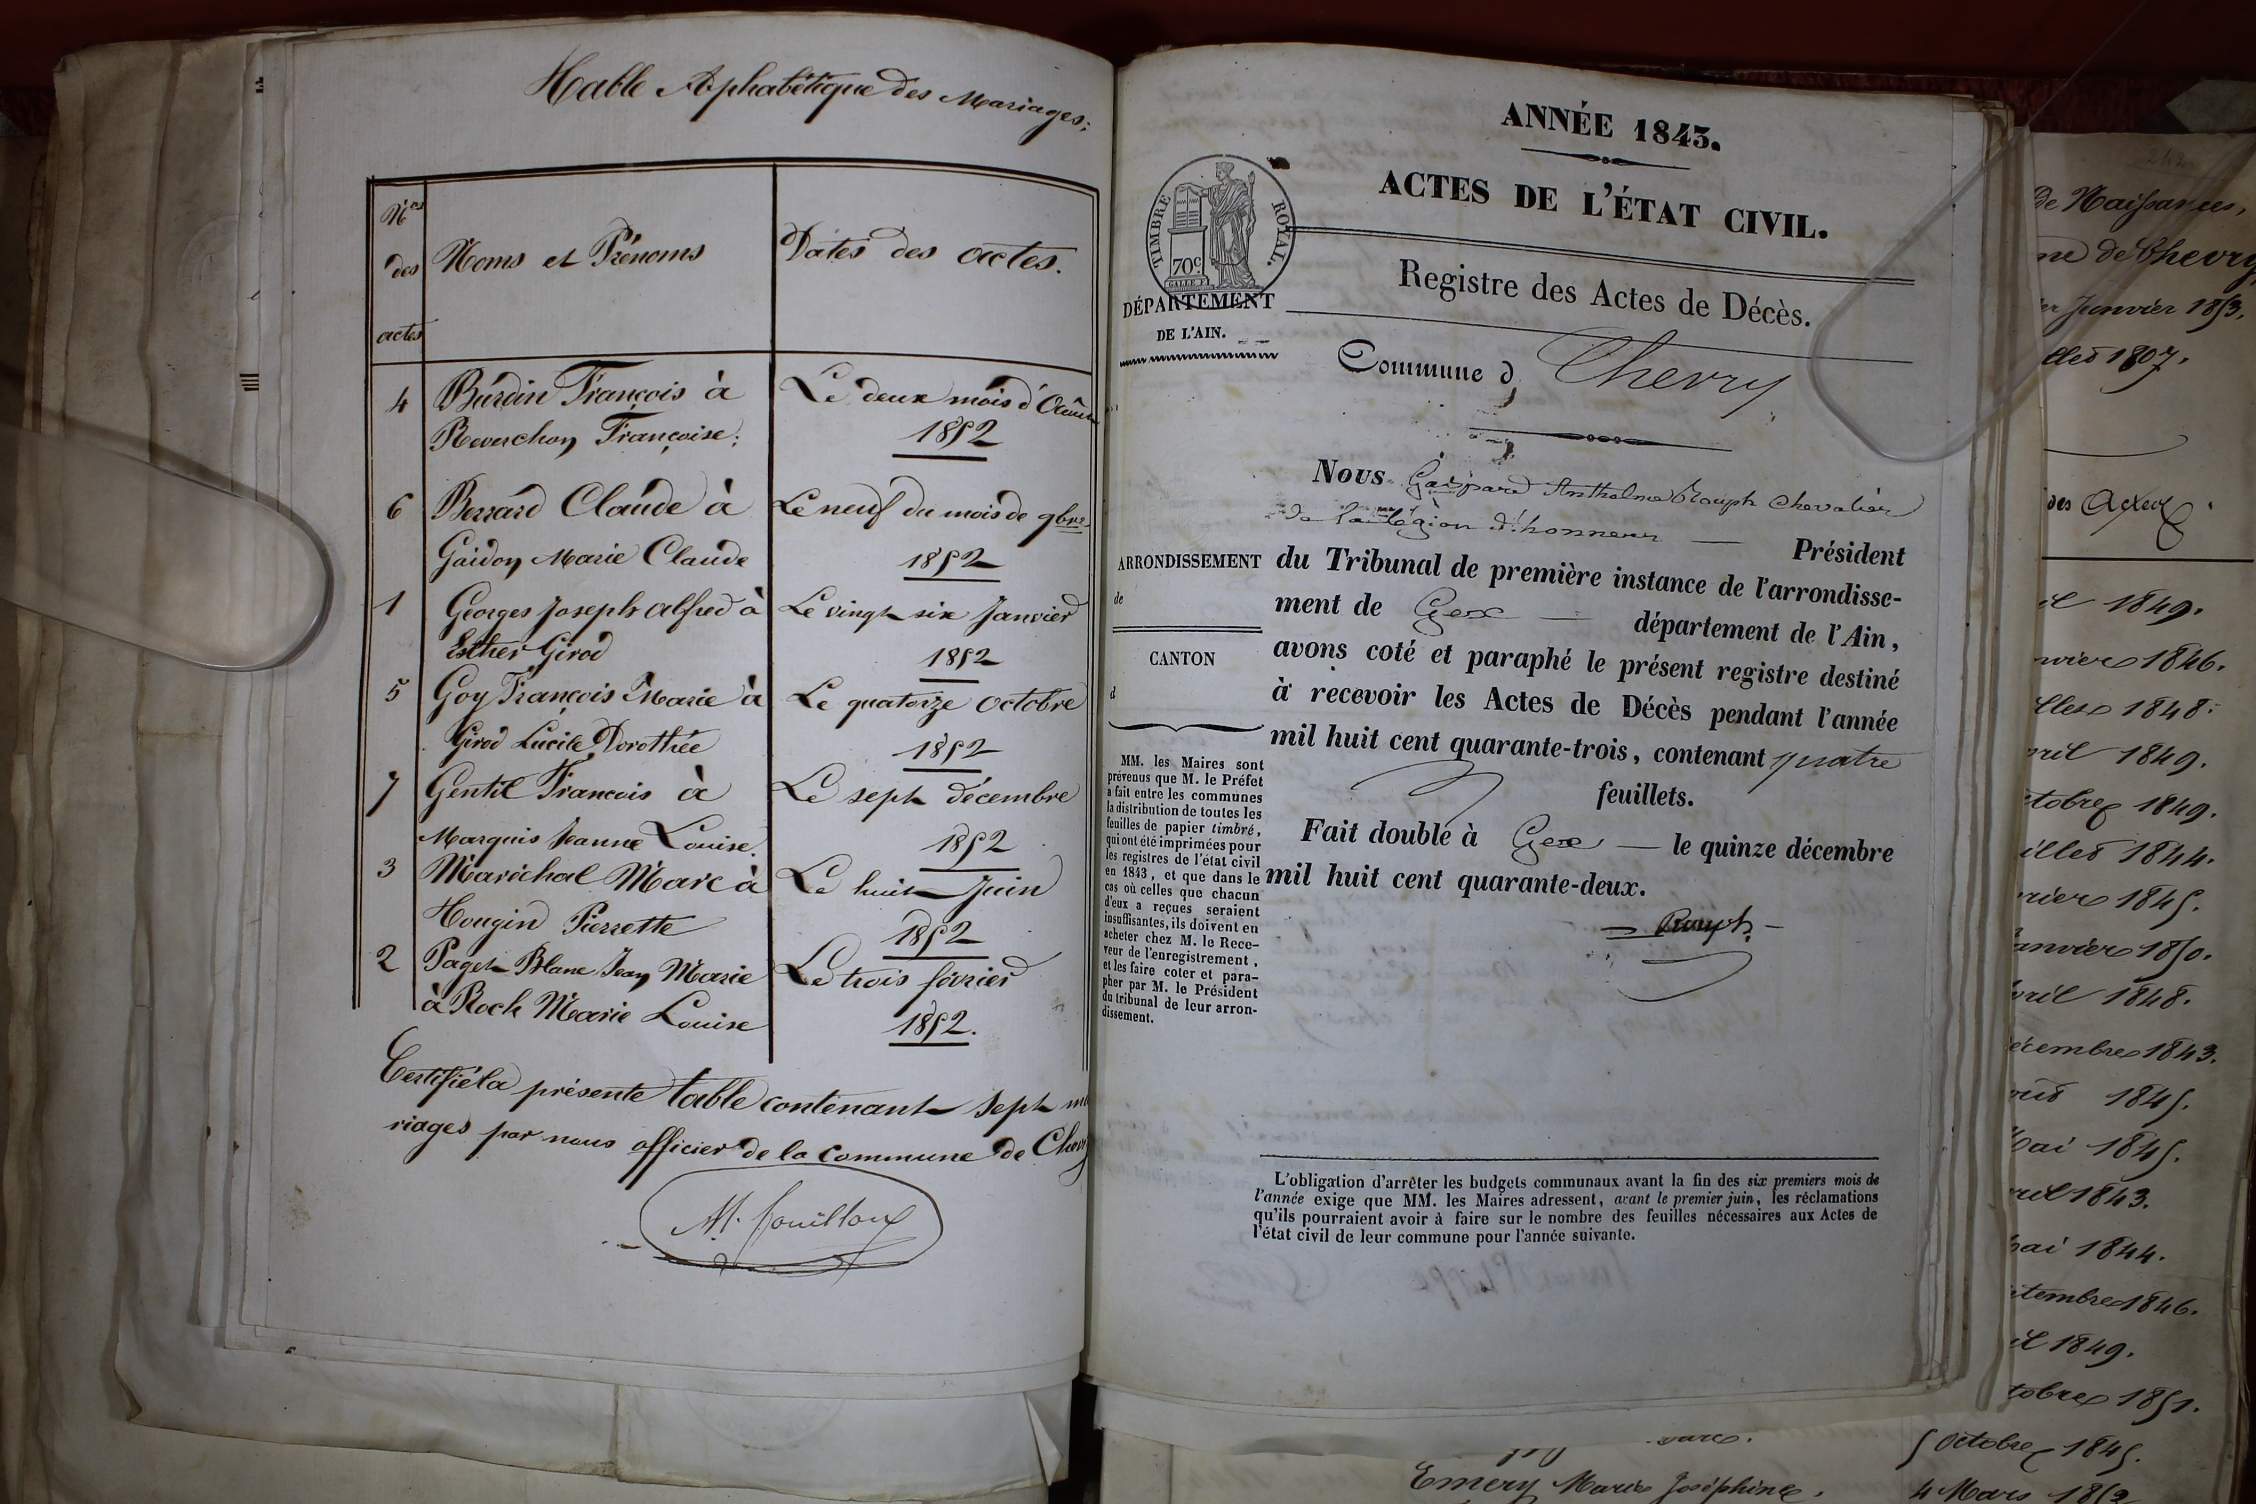 Table Alphabétique des Mariages;
Nos
des
actes
Noms et Prénoms
Dates des actes.
4
Burdin François à
Reverchon Françoise;
Le deux mois d'Août
1852
6
Berrard Claude à
Gaidon Marie Claude
Le neuf du mois de 9bre
1852
1
Georges Joseph alfred à
Esther Girod
Le vingt six Janvier
1852
5
Goy François Marie à
Girod Lucile Dorothée
Le quatorze Octobre
1852
7
Gentil François à
Marquis Jeanne Louise.
Le sept décembre
1852
3
Maréchal Marc à
Hougin Pierrette
Le huit Juin
1852
2
Paget Blanc Jean Marie
à Roch Marie Louise
Le trois février
1852.
Certifié la présente table contenant sept ma
riages par nous officier de la commune de Chevry
M. fouilloux
ANNÉE 1843.
ACTES DE L'ÉTAT CIVIL.
TIMBRE ROYAL.
70c
DÉPARTEMENT
DE L'AIN.
Registre des Actes de Décès.
Commune d Chevry
Nous Gaspard Anthelme Rouph chevalier
de la Légion d'honneur — Président
du Tribunal de première instance de l'arrondisse-
ment de Gex — département de l'Ain,
avons coté et paraphé le présent registre destiné
à recevoir les Actes de Décès pendant l'année
mil huit cent quarante-trois, contenant quatre
feuillets.
Fait double à Gex — le quinze décembre
mil huit cent quarante-deux.
Rouph
ARRONDISSEMENT
de
CANTON
d
MM. les Maires sont
prévenus que M. le Préfet
a fait entre les communes
la distribution de toutes les
feuilles de papier timbré,
qui ont été imprimées pour
les registres de l'état civil
en 1843, et que dans le
cas où celles que chacun
d'eux a reçues seraient
insuffisantes, ils doivent en
acheter chez M. le Rece-
veur de l'enregistrement,
et les faire coter et para-
pher par M. le Président
du tribunal de leur arron-
dissement.
L'obligation d'arrêter les budgets communaux avant la fin des six premiers mois de
l'année exige que MM. les Maires adressent, avant le premier juin, les réclamations
qu'ils pourraient avoir à faire sur le nombre des feuilles nécessaires aux Actes de
l'état civil de leur commune pour l'année suivante.
de Naissances,
ne de Chevry
er Janvier 1853,
llet 1807.
des Actes
il 1849.
nvier 1846.
llet 1848.
vril 1849.
ctobre 1849.
uillet 1844.
vrier 1845.
Janvier 1850.
Avril 1848.
écembre 1843.
Août 1845.
Mai 1845.
vril 1843.
Mai 1844.
ptembre 1846.
il 1849.
tobre 1851.
5 Octobre 1845.
Emery Marie Joséphine.
4 Mars 1852